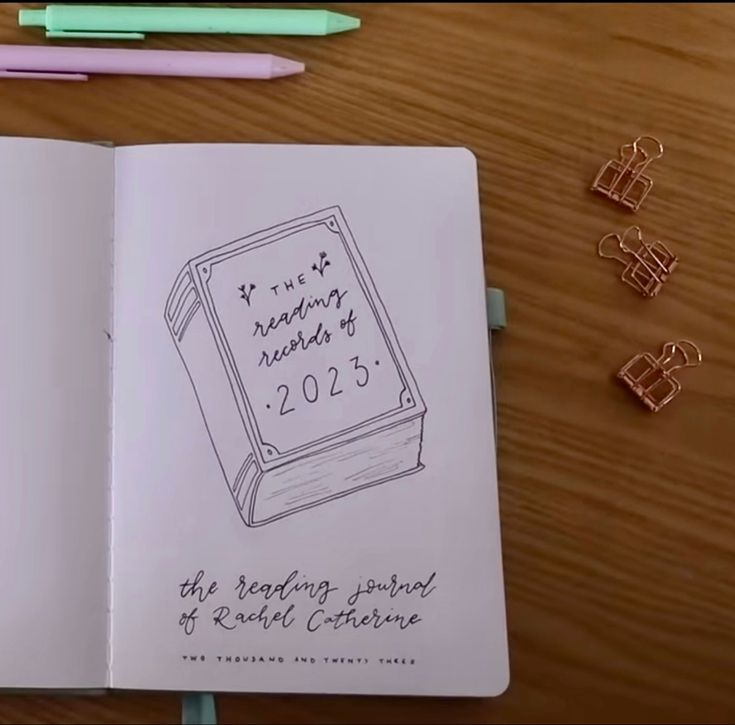 THE
reading
records of
·2023·
the reading journal
of Rachel Catherine
TWO THOUSAND AND TWENTY THREE